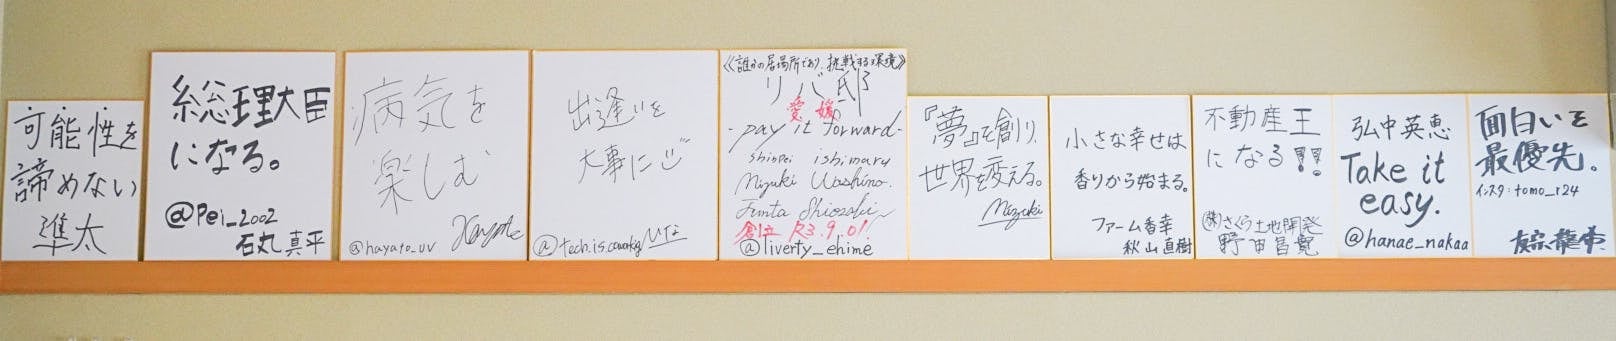 可能性を
諦めない
準太
総理大臣
になる。
@Pei_2002
石丸真平
病気を
楽しむ
@hayato_uv
Hayato
出逢いを
大事に
@tech.is.coworking
ひな
《誰かの居場所であり、挑戦する環境》
リバ邸
愛媛
-pay it forward-
shinpei ishimaru
Mizuki Washino.
Junta Shiozaki
創立 R3.9.01!
@liverty_ehime
『夢』を創り、
世界を変える。
Mizuki
小さな幸せは
香りから始まる。
ファーム香幸
秋山直樹
不動産王
になる!!
㈱さくら土地開発
野田昌寛
弘中英恵
Take it
easy.
@hanae_nakaa
面白いを
最優先。
インスタ:tomo_r24